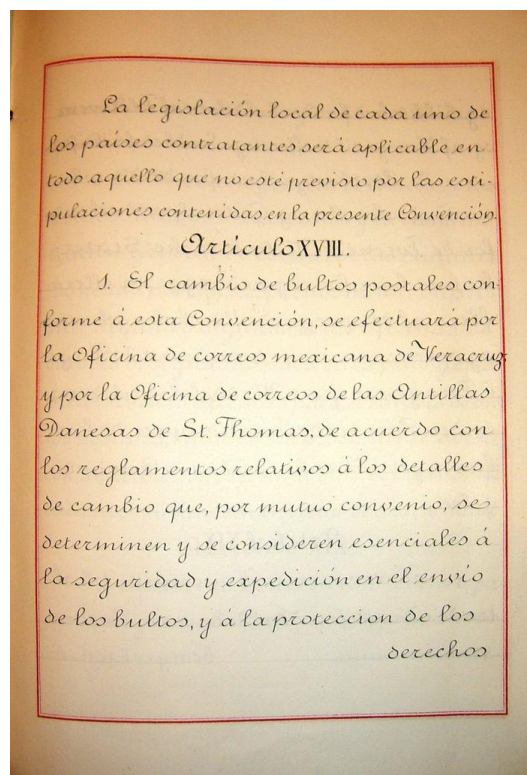 La legislación local de cada uno de
los países contratantes será aplicable en
todo aquello que no esté previsto por las esti-
pulaciones contenidas en la presente Convención.
Artículo XVIII.
1. El cambio de bultos postales con-
forme á esta Convención, se efectuará por
la Oficina de correos mexicana de Veracruz
y por la Oficina de correos de las Antillas
Danesas de St. Thomas, de acuerdo con
los reglamentos relativos á los detalles
de cambio que, por mutuo convenio, se
determinen y se consideren esenciales á
la seguridad y expedición en el envío
de los bultos, y á la proteccion de los
derechos